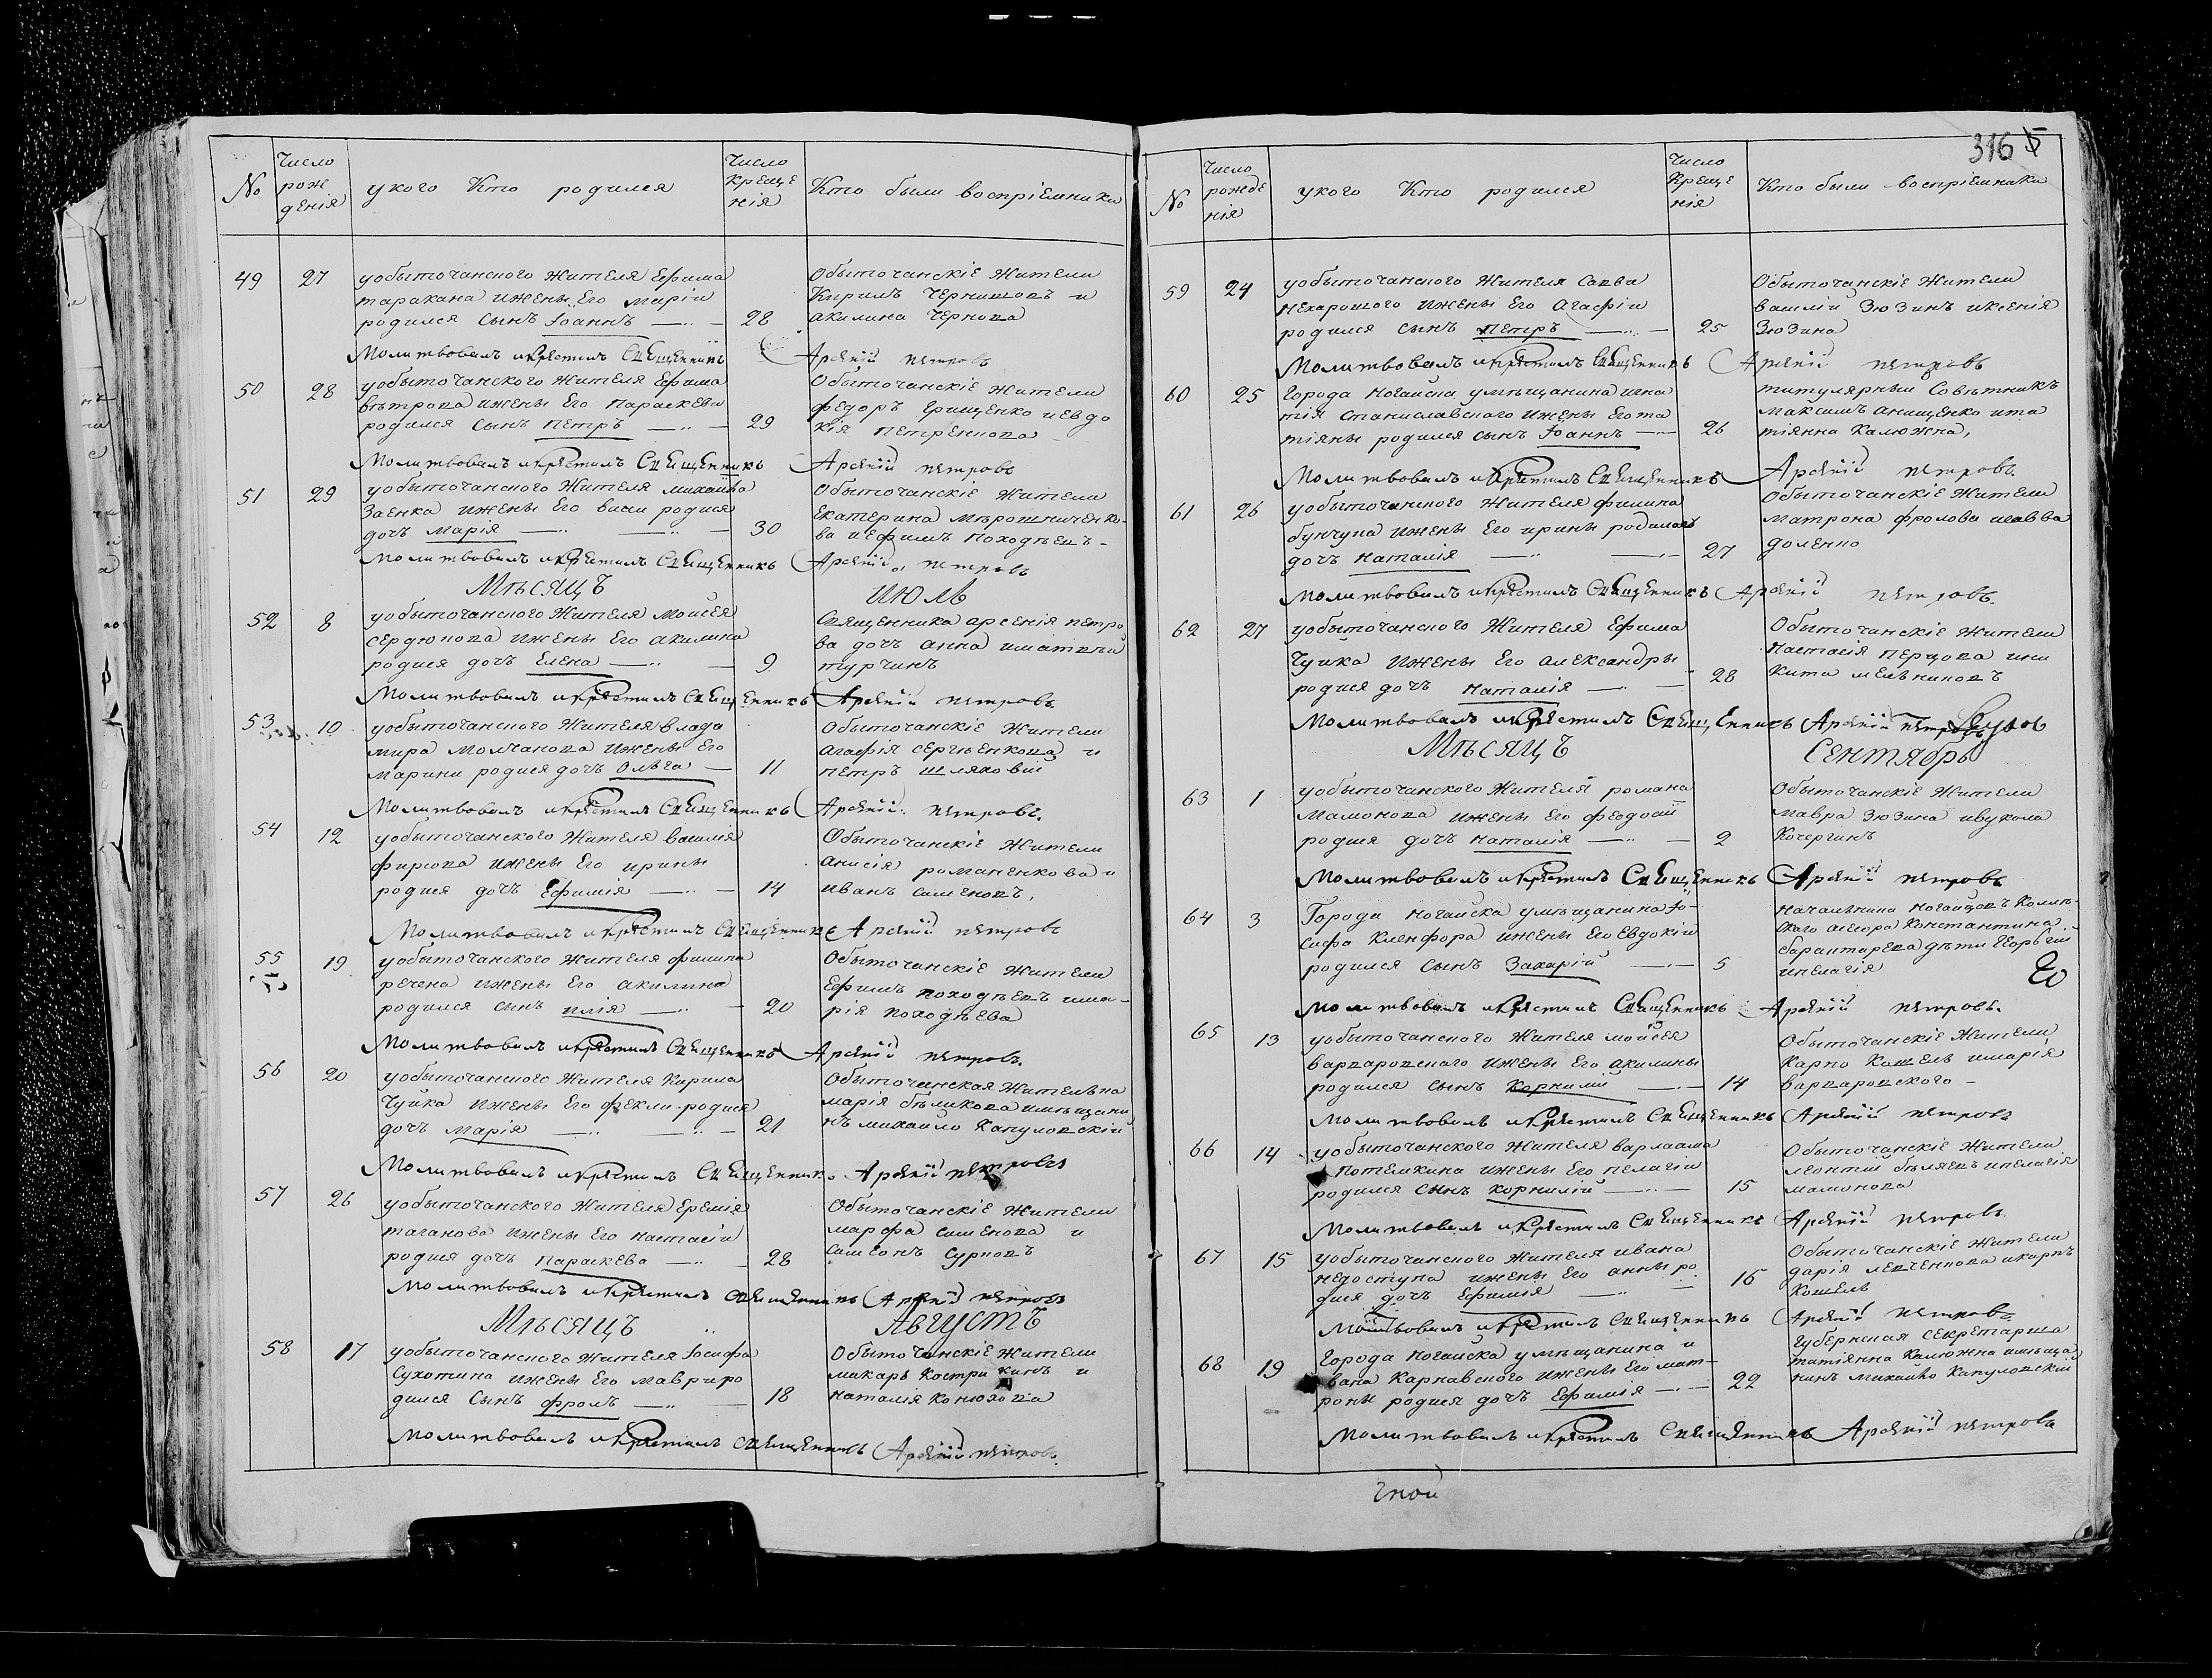 316 5
No
Число рож дения
укого Кто родился
Число Креще нія
Кто были воспріемники
49 27 уобыточанского Жителя Ефима
таракана ижены Его маріи
родился сынъ Іоаннъ 28
Обыточанскіе Жители
Кирилъ Чернишовъ и
акилина Чернова
Молитвовалъ икрестилъ Священникъ Арсеній петровъ
50 28 уобыточанского Жителя Ефима
вѣтрова ижены Его Параскеви
родился сынъ петръ 29
Обыточанскіе Жители
федоръ Грищенко иевдо
кія петренкова
Молитвовалъ икрестилъ Священникъ Арсеній петровъ
51 29 уобыточанского Жителя михайла
Заенка ижены Его васи родися
дочъ марія 30
Обыточанскіе Жители
Екатерина мѣрошниченко-
ва иефимъ походѣевъ-
Молитвовалъ икрестилъ Священникъ Арсеній петровъ
Мѣсяцъ Июль
52 8 уобыточанского Жителя Мойсея
сердюкова ижены Его акилины
родися дочъ Елена 9
Священника арсенія петро
ва дочъ анна иматвѣй
турчинъ
Молитвовалъ икрестилъ Священникъ Арсеній петровъ
53 10 уобыточанского Жителя влади
мира молчанова ижены Его
марини родися дочъ Ольга 11
Обыточанскіе Жители
агафія сергѣенкова и
петръ шляховій
Молитвовалъ икрестилъ Священникъ Арсеній петровъ.
54 12 уобыточанского Жителя василія
фирсова ижены Его ирины
родися дочъ Ефимія 14
Обыточанскіе Жители
анисія романенкова и
иванъ симѣновъ,
Молитвовалъ икрестилъ Священникъ Арсеній петровъ
55 19 уобыточанского Жителя филипа
речена ижены Его акилины
родился сынъ илія 20
Обыточанскіе Жители
Ефимъ походѣевъ има-
рія походѣева
Молитвовалъ икрестилъ Священникъ Арсеній петровъ.
56 20 уобыточанского Жителя Карила
Чуйка ижены Его фекли родися
дочъ марія 21
Обыточанская Жителька
марія бѣликова имѣщани
нъ михайло Капуловскій
Молитвовалъ икрестилъ Священникъ Арсеній петровъ
57 26 уобыточанского Жителя Еремія
таганова ижены Его настасіи
родися дочъ Параскева 28
Обыточанскіе Жители
марфа симѣнова и
самсонъ сурновъ
Молитвовалъ икрестилъ Священникъ Арсеній петровъ
Мѣсяцъ Августъ
58 17 уобыточанского Жителя Іосифа
Сухотина ижены Его маври ро
дился сынъ фролъ 18
Обыточанскіе Жители
макаръ Кострикинъ и
наталія Конюхова
Молитвовалъ икрестилъ Священникъ Арсеній петровъ.
No
Число рожде нія
укого Кто родился
Число Креще нія
Кто были воспріемники
59 24 уобыточанского Жителя Савви
нехарошого ижены Его Агафіи
родился сынъ петръ 25
Обыточанскіе Жители
василій Зюзинъ иксенія
Зюзина
Молитвовалъ икрестилъ Священникъ Арсеній петровъ
60 25 Города Ногайска умѣщанина игна
тія станиславского ижены Его та
тіяны родился сынъ Іоаннъ 26
титулярный Совѣтникъ
максимъ анищенко ита
тіянна Калюжна,
Молитвовалъ икрестилъ Священникъ Арсеній петровъ
61 26 уобыточанского Жителя филипа
бунчука ижены Его ирины родилась
дочъ наталія 27
Обыточанскіе Жители
матрона фролова исавва
доленко
Молитвовалъ икрестилъ Священникъ Арсеній петровъ.
62 27 уобыточанского Жителя Ефима
Чуйка ижены Его александры
родися дочъ наталія 28
Обыточанскіе Жители
настасія перцова ини
кита мельниковъ
Молитвовалъ икрестилъ Священникъ Арсеній петровъ
Мѣсяцъ Сентябрь
63 1 уобыточанского Жителя романа
мамонова ижены Его феодосіи
родися дочъ наталія 2
Обыточанскіе Жители
мавра Зюзина ивукола
Кочергинъ
Молитвовалъ икрестилъ Священникъ Арсеній петровъ
64 3 Города ногайска умѣщанина Іо-
сифа Кленфора ижены Его Евдокіи
родился сынъ Захарій 5
началника ногайцовъ Колѣж-
ского асесора Константина
барактарева дѣти Георьгій
ипелагія
Молитвовалъ икрестилъ Священникъ Арсеній петровъ.
65 13 уобыточанского Жителя мойсея
варваровского ижены Его акилины
родился сынъ Корнилій 14
Обыточанскіе Жители
Карпо Кошель имарія
варваровского-
Молитвовалъ икрестилъ Священникъ Арсеній петровъ
66 14 уобыточанского Жителя варлаама
Потемкина ижены Его пелагіи
родился сынъ корнилій 15
Обыточанскіе Жители
леонтій бѣляевъ ипелагія
мамонова
Молитвовалъ икрестилъ Священникъ Арсеній петровъ
67 15 уобыточанского Жителя ивана
недоступа ижены Его анны ро
дися дочъ Ефимія 16
Обыточанскіе Жители
дарія левченкова икарпъ
Кошель
Молитвовалъ икрестилъ Священникъ Арсеній петровъ
68 19 Города Ногайска умѣщанина и
вана Карнавского ижены Его мат-
роны родися дочъ Ефимія 22
губернская секретарша
татіянна Калюжна имѣща
нинъ михайло Капуловскій
Молитвовалъ икрестилъ Священникъ Арсеній петровъ